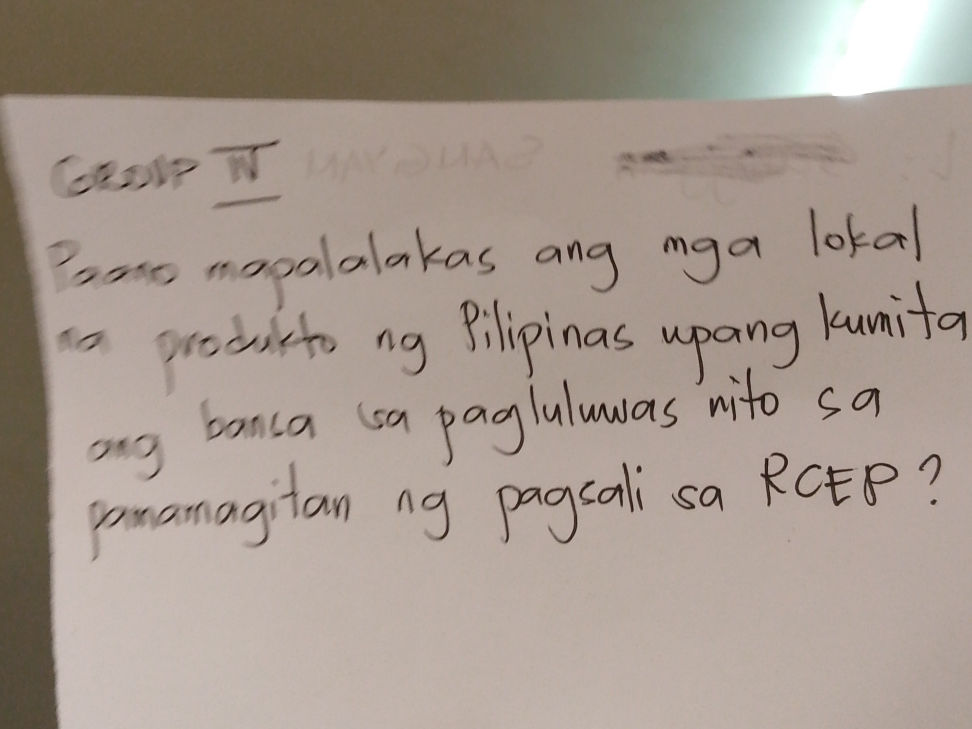 GROUP IV
Paano mapalalakas ang mga lokal
na produkto ng Pilipinas upang kumita
ang bansa sa pagluluwas nito sa
pamamagitan ng pagsali sa RCEP?